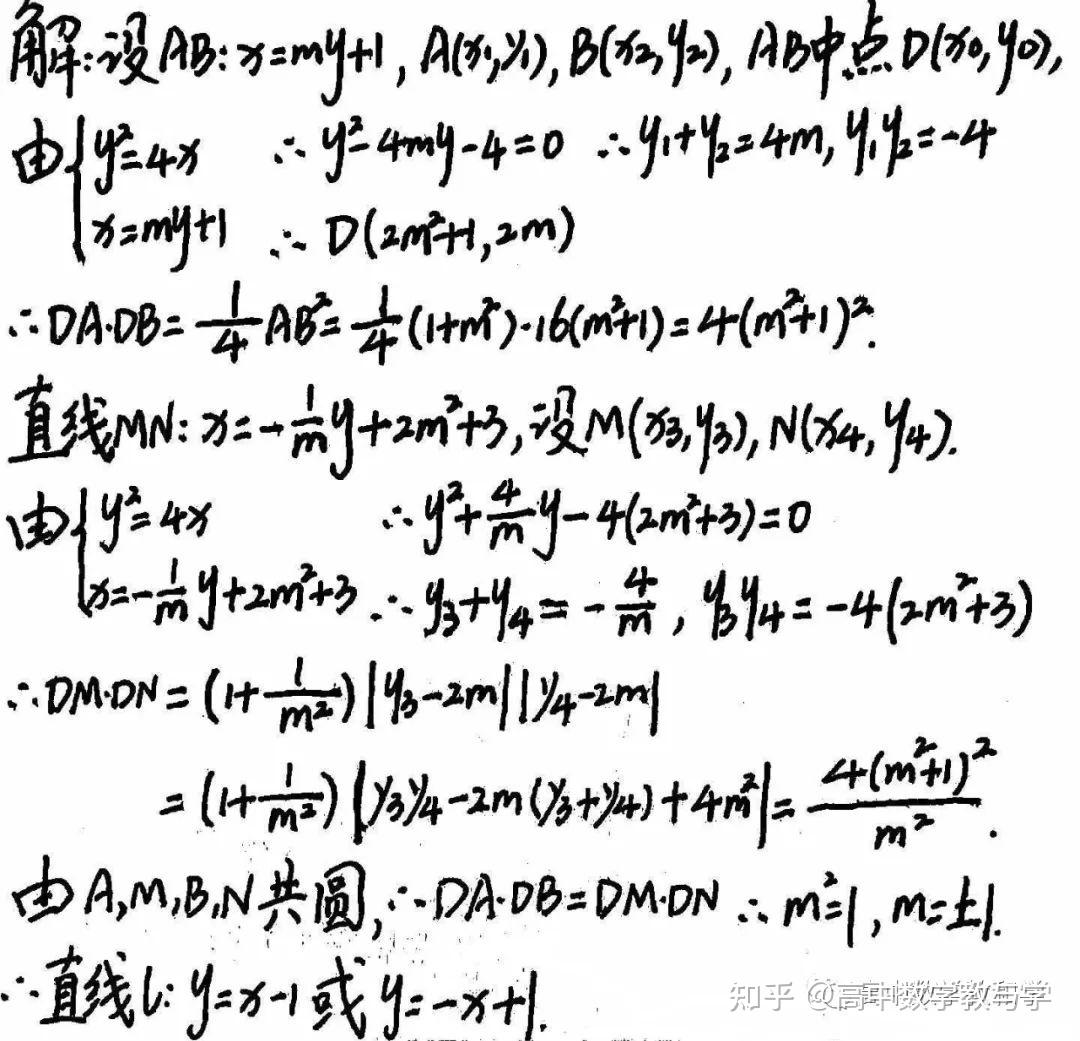 解:设AB:x=my+1, A(x₁,y₁), B(x₂,y₂), AB中点D(x₀,y₀),
由{y²=4x ∴ y²-4my-4=0 ∴ y₁+y₂=4m, y₁y₂=-4
x=my+1 ∴ D(2m²+1,2m)
∴DA·DB=1/4AB²=1/4(1+m²)·16(m²+1)=4(m²+1)².
直线MN: x=-1/m y+2m²+3,设M(x₃,y₃), N(x₄,y₄).
由{y²=4x ∴ y²+4/m y-4(2m²+3)=0
x=-1/m y+2m²+3 ∴ y₃+y₄=-4/m, y₃y₄=-4(2m²+3)
∴DM·DN=(1+1/m²)|y₃-2m||y₄-2m|
=(1+1/m²)|y₃y₄-2m(y₃+y₄)+4m²|=4(m²+1)²/m².
由A,M,B,N共圆,∴DA·DB=DM·DN ∴ m²=1, m=±1.
∴直线l: y=x-1或y=-x+1.
知乎 @高中数学教与学